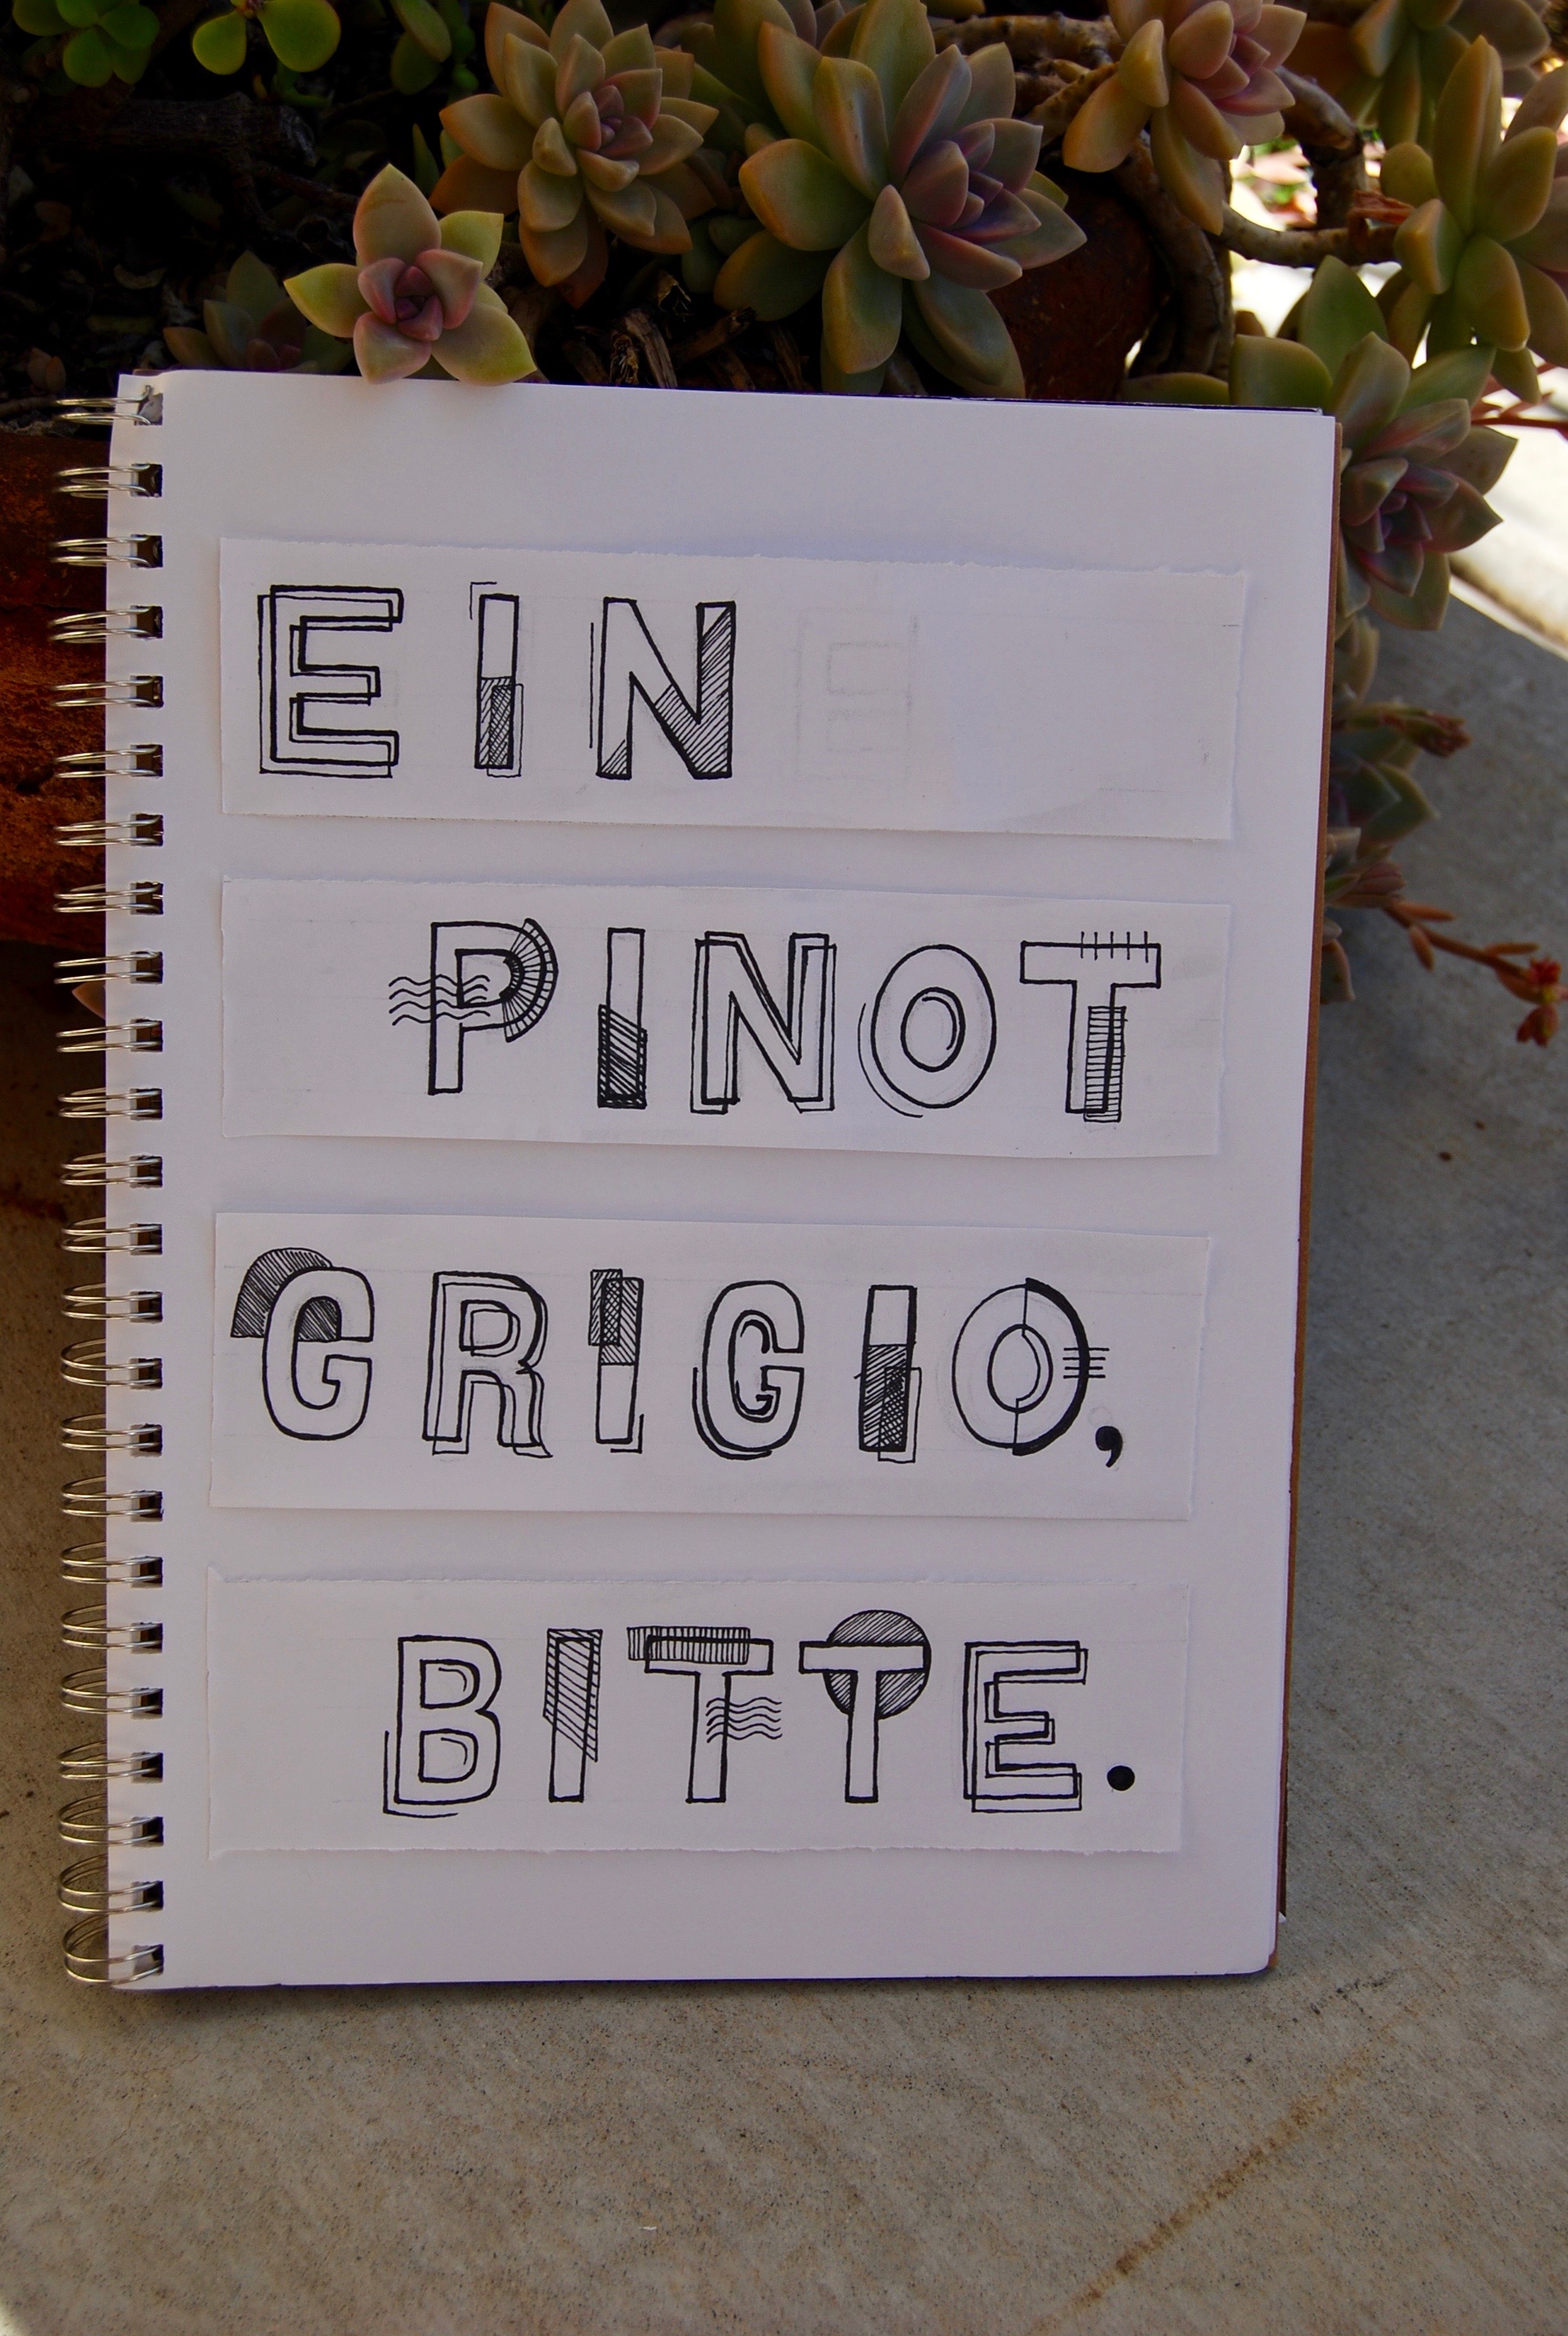 EIN
PINOT
GRIGIO,
BITTE.